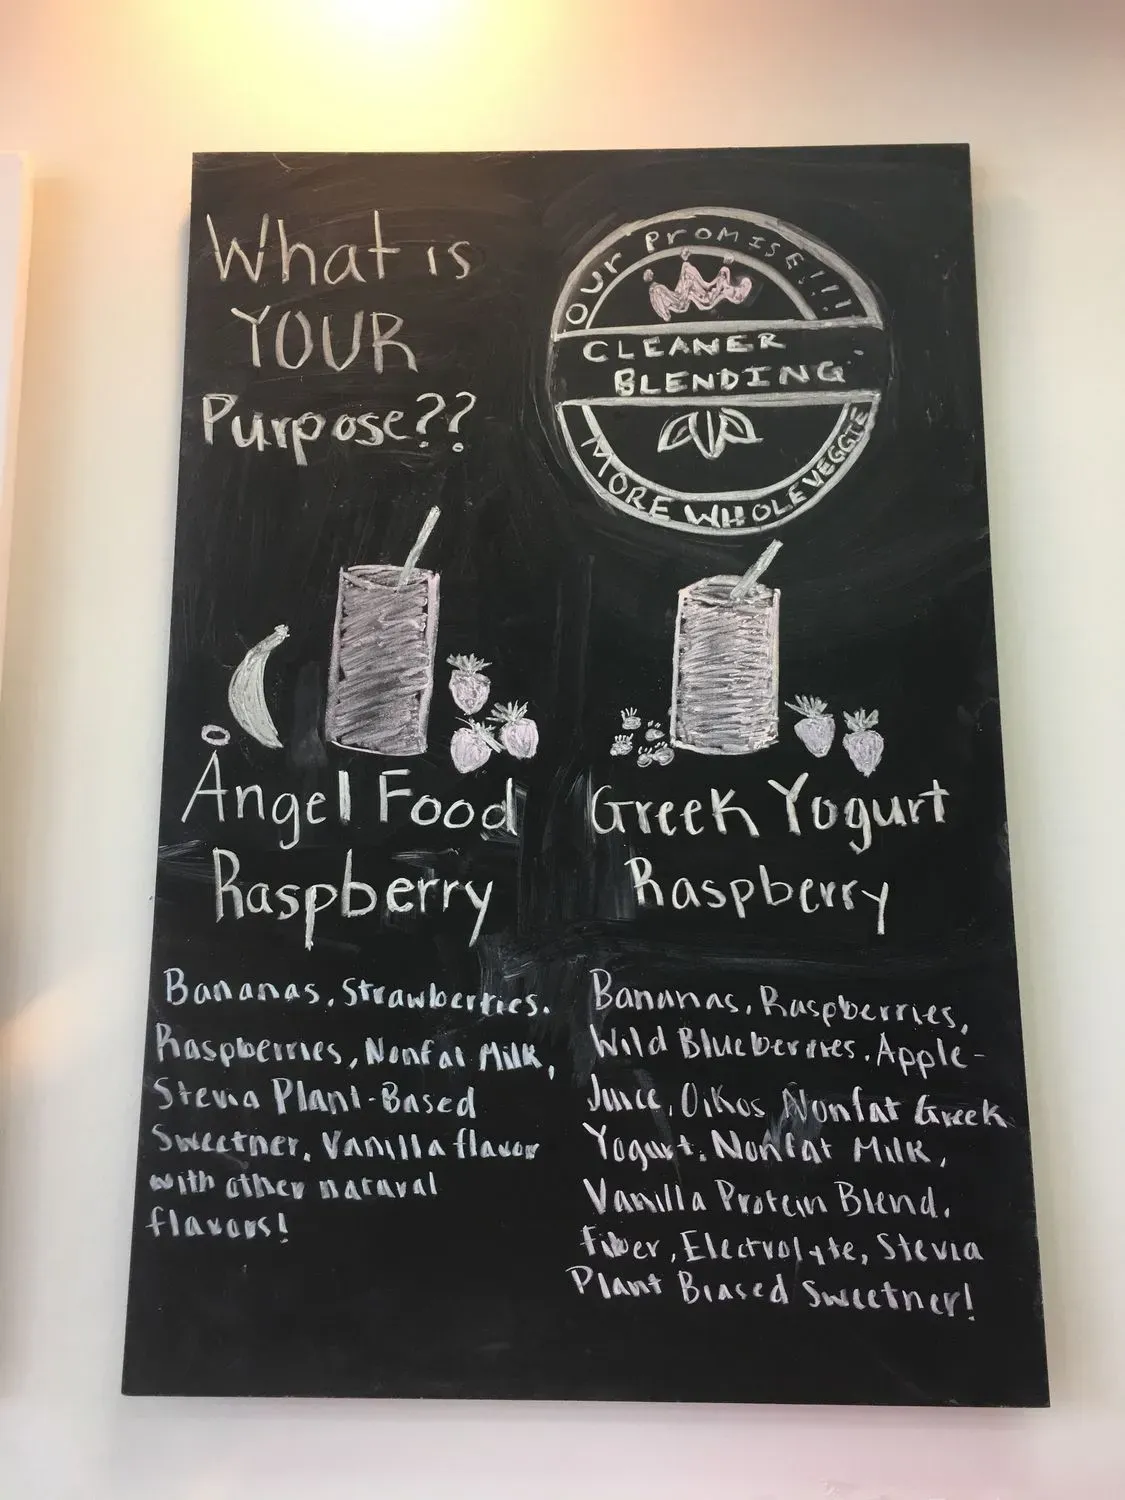 What is
YOUR
Purpose??
Our PROMISE!!!
CLEANER
BLENDING
MORE WHOLE VEGGIE
Angel Food
Raspberry
Bananas, Strawberries.
Raspberries, Nonfat Milk,
Stevia Plant-Based
Sweetner, Vanilla flavor
with other natural
flavors!
Greek Yogurt
Raspberry
Bananas, Raspberries,
Wild Blueberries, Apple-
Juice, Oikos Nonfat Greek
Yogurt, Nonfat Milk,
Vanilla Protein Blend,
Fiber, Electrolyte, Stevia
Plant Biased Sweetner!